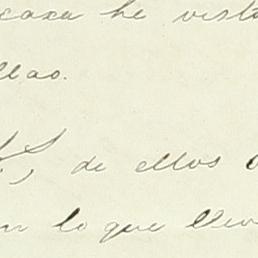 caxa he vist
llao.
de ellos
n lo que lleva